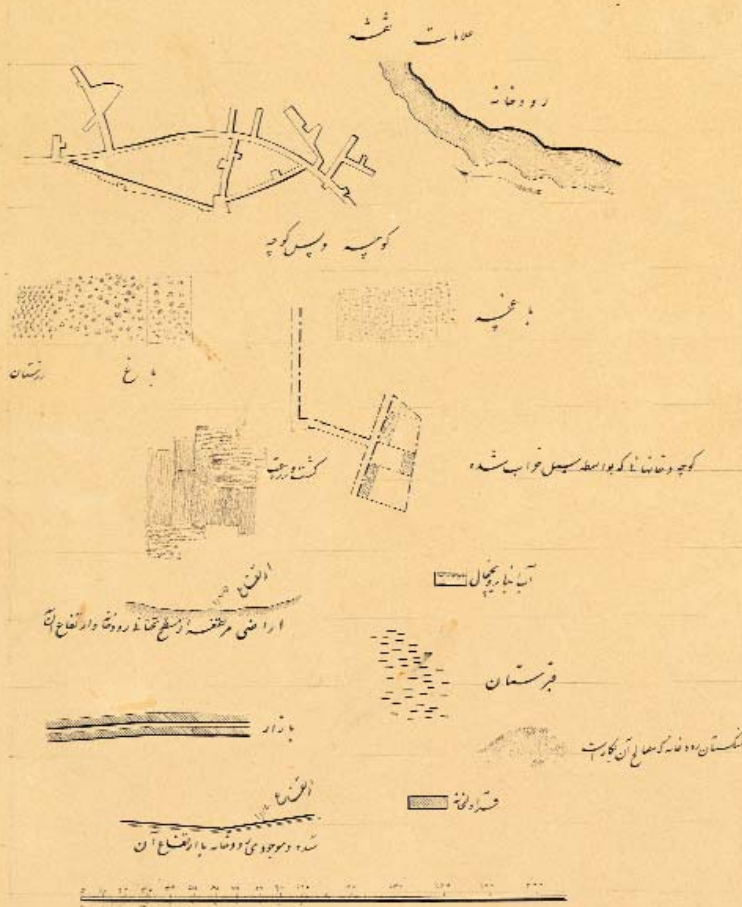 علامات نقشه
رودخانه
کوچه و پس کوچه
باغچه
باغ
رزستان
کوچه و خانهائیکه بواسطه سیل خراب شده
کشت و زرع
آب انبار و یخچال
ارتفاع
اراضی مرتفعه از سطح تحتانی رودخانه و ارتفاع آن
قبرستان
بازار
سنگستان رودخانه که مصالح آن بکار است
ارتفاع
قراولخانه
سد موجودی رودخانه با ارتفاع آن